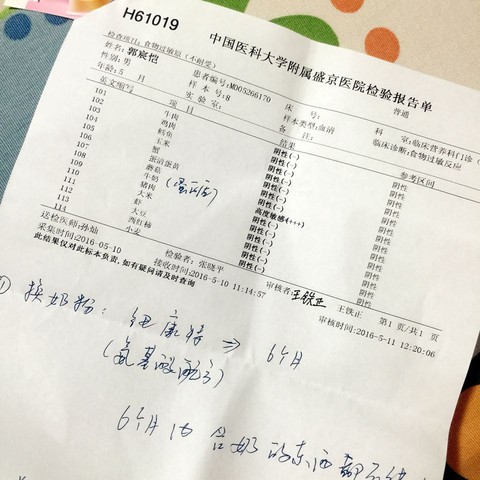 H61019
中国医科大学附属盛京医院检验报告单
普通
检查项目:食物过敏原(不耐受)
姓名:郭宸恺
患者编号:MD05266170
床 号:
科 室:临床营养科门诊
性别:男
样 本 号:8
样本类型:血清
临床诊断:食物过敏反应
年龄:5 月
实 验 室:
备 注:
英文缩写 项 目 结果 参考区间
101 牛肉 阴性(-) 阴性
102 鸡肉 阴性(-) 阴性
103 鳕鱼 阴性(-) 阴性
104 玉米 阴性(-) 阴性
105 蟹 阴性(-) 阴性
106 蛋清蛋黄 阴性(-) 阴性
107 蘑菇 阴性(-) 阴性
108 牛奶 高度敏感(+++) 阴性
109 猪肉 阴性(-) 阴性
110 大米 阴性(-) 阴性
111 虾 阴性(-) 阴性
112 大豆 阴性(-) 阴性
113 西红柿 阴性(-) 阴性
114 小麦 阴性(-) 阴性
送检医师:孙灿
检验者:张晓平
审核者:王铁正
王铁正
第1 页/共1 页
采集时间:2016-05-10
接收时间:2016-5-10 11:14:57
审核时间:2016-5-11 12:20:06
此结果仅对此标本负责,如有疑问请及时查询
① 换奶粉: 纽康特 ⇒ 6个月
(氨基酸配方)
6个月内 含奶的东西都不